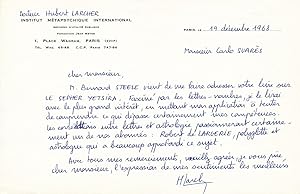 Docteur Hubert LARCHER
INSTITUT MÉTAPSYCHIQUE INTERNATIONAL
1, PLACE WAGRAM, PARIS (XVIIe)
PARIS le 19 décembre 1968
Monsieur Carlo SUARÈS
Cher monsieur,
M. Bernard STEELE vient de me faire adresser votre livre sur
LE SEPHER YETSIRA, fasciné par les lettres-nombres, je le lirai
avec le plus grand intérêt, en mettant mon application à tenter
de comprendre ce qui dépasse certainement mes compétences.
les corrélations entre lettre et astrologie passionneraient certaine-
ment un de nos abonnés : Robert de LARGERIE, polyglotte et
astrologue qui a beaucoup approfondi ce sujet.
Avec tous mes remerciements, veuillez agréer, je vous prie
cher monsieur, l'expression de mes sentiments les meilleurs